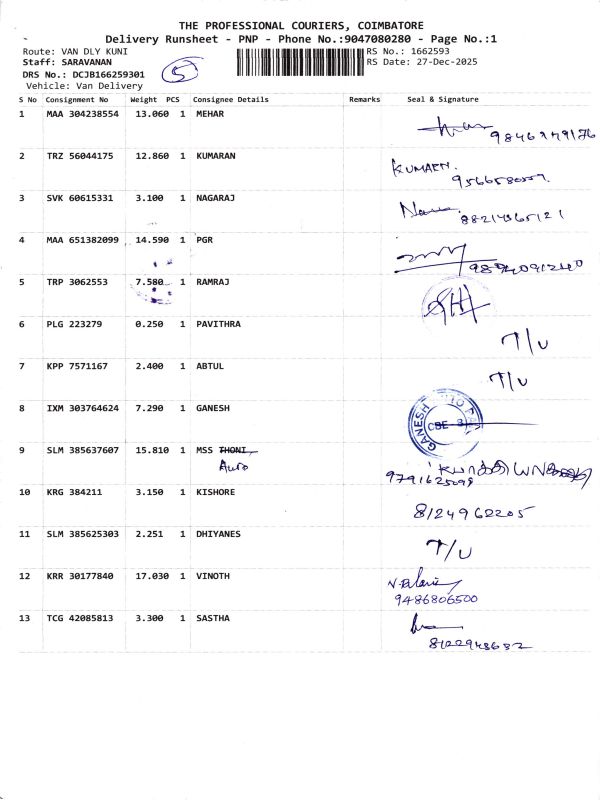 THE PROFESSIONAL COURIERS, COIMBATORE
Delivery Runsheet - PNP - Phone No.:9047080280 - Page No.:1
Route: VAN DLY KUNI
RS No.: 1662593
Staff: SARAVANAN
RS Date: 27-Dec-2025
DRS No.: DCJB166259301
5
Vehicle: Van Delivery
S No Consignment No Weight PCS Consignee Details Remarks Seal & Signature
1 MAA 304238554 13.060 1 MEHAR
2 TRZ 56044175 12.860 1 KUMARAN
KUMARN.
3 SVK 60615331 3.100 1 NAGARAJ
4 MAA 651382099 14.590 1 PGR
5 TRP 3062553 7.580 1 RAMRAJ
6 PLG 223279 0.250 1 PAVITHRA
T/U
7 KPP 7571167 2.400 1 ABTUL
T/U
8 IXM 303764624 7.290 1 GANESH
GANESH
CBE - 3
9 SLM 385637607 15.810 1 MSS THONI
Auro
10 KRG 384211 3.150 1 KISHORE
8124962205
11 SLM 385625303 2.251 1 DHIYANES
T/U
12 KRR 30177840 17.030 1 VINOTH
9486806500
13 TCG 42085813 3.300 1 SASTHA